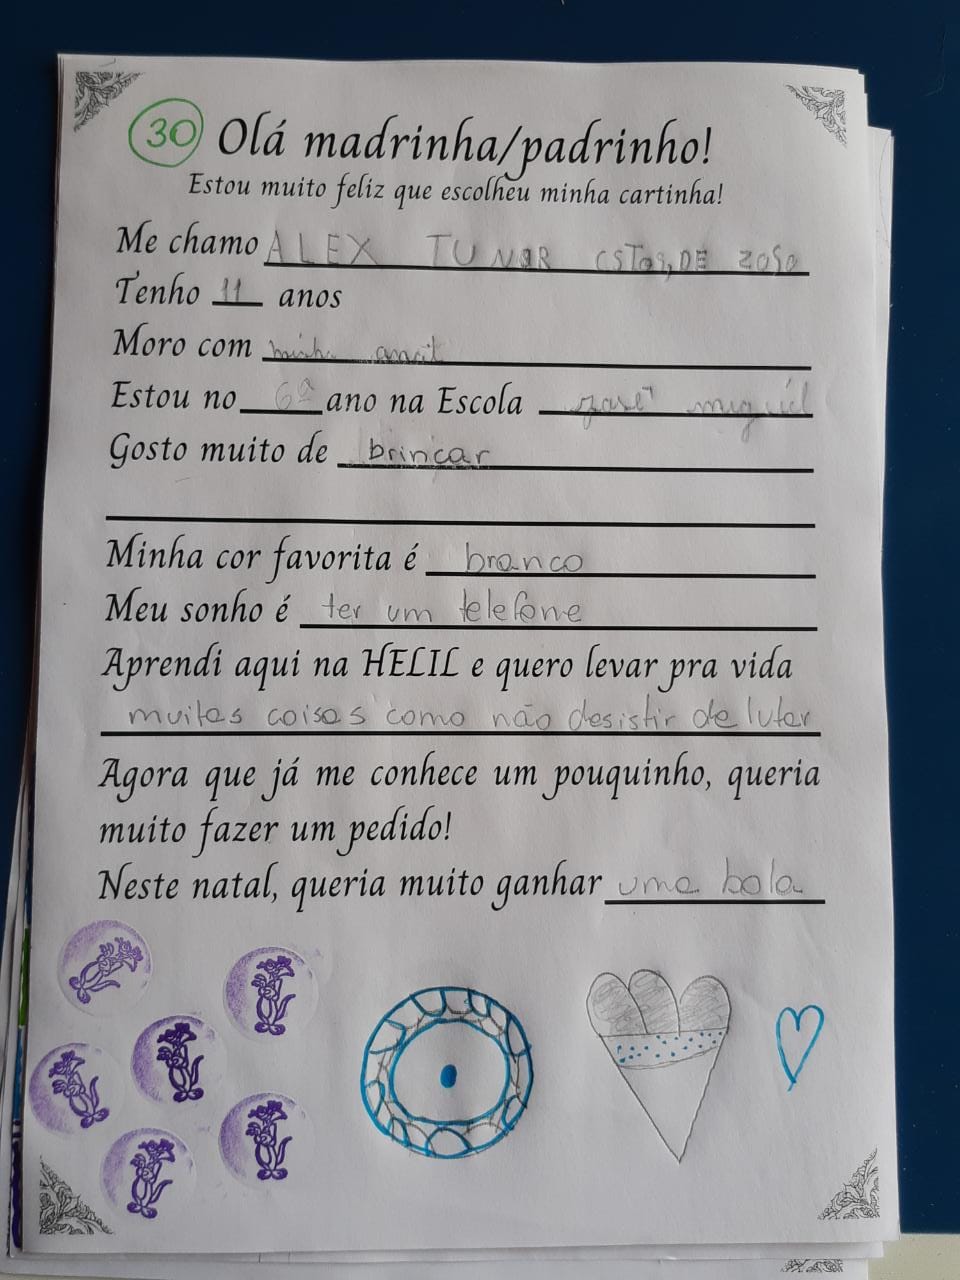 30 Olá madrinha/padrinho!
Estou muito feliz que escolheu minha cartinha!
Me chamo ALEX
Tenho 11 anos
Moro com minha
Estou no 6º ano na Escola
Gosto muito de brincar
Minha cor favorita é branco
Meu sonho é ter um telefone
Aprendi aqui na HELIL e quero levar pra vida
muitas coisas como não desistir de lutar
Agora que já me conhece um pouquinho, queria
muito fazer um pedido!
Neste natal, queria muito ganhar uma bola